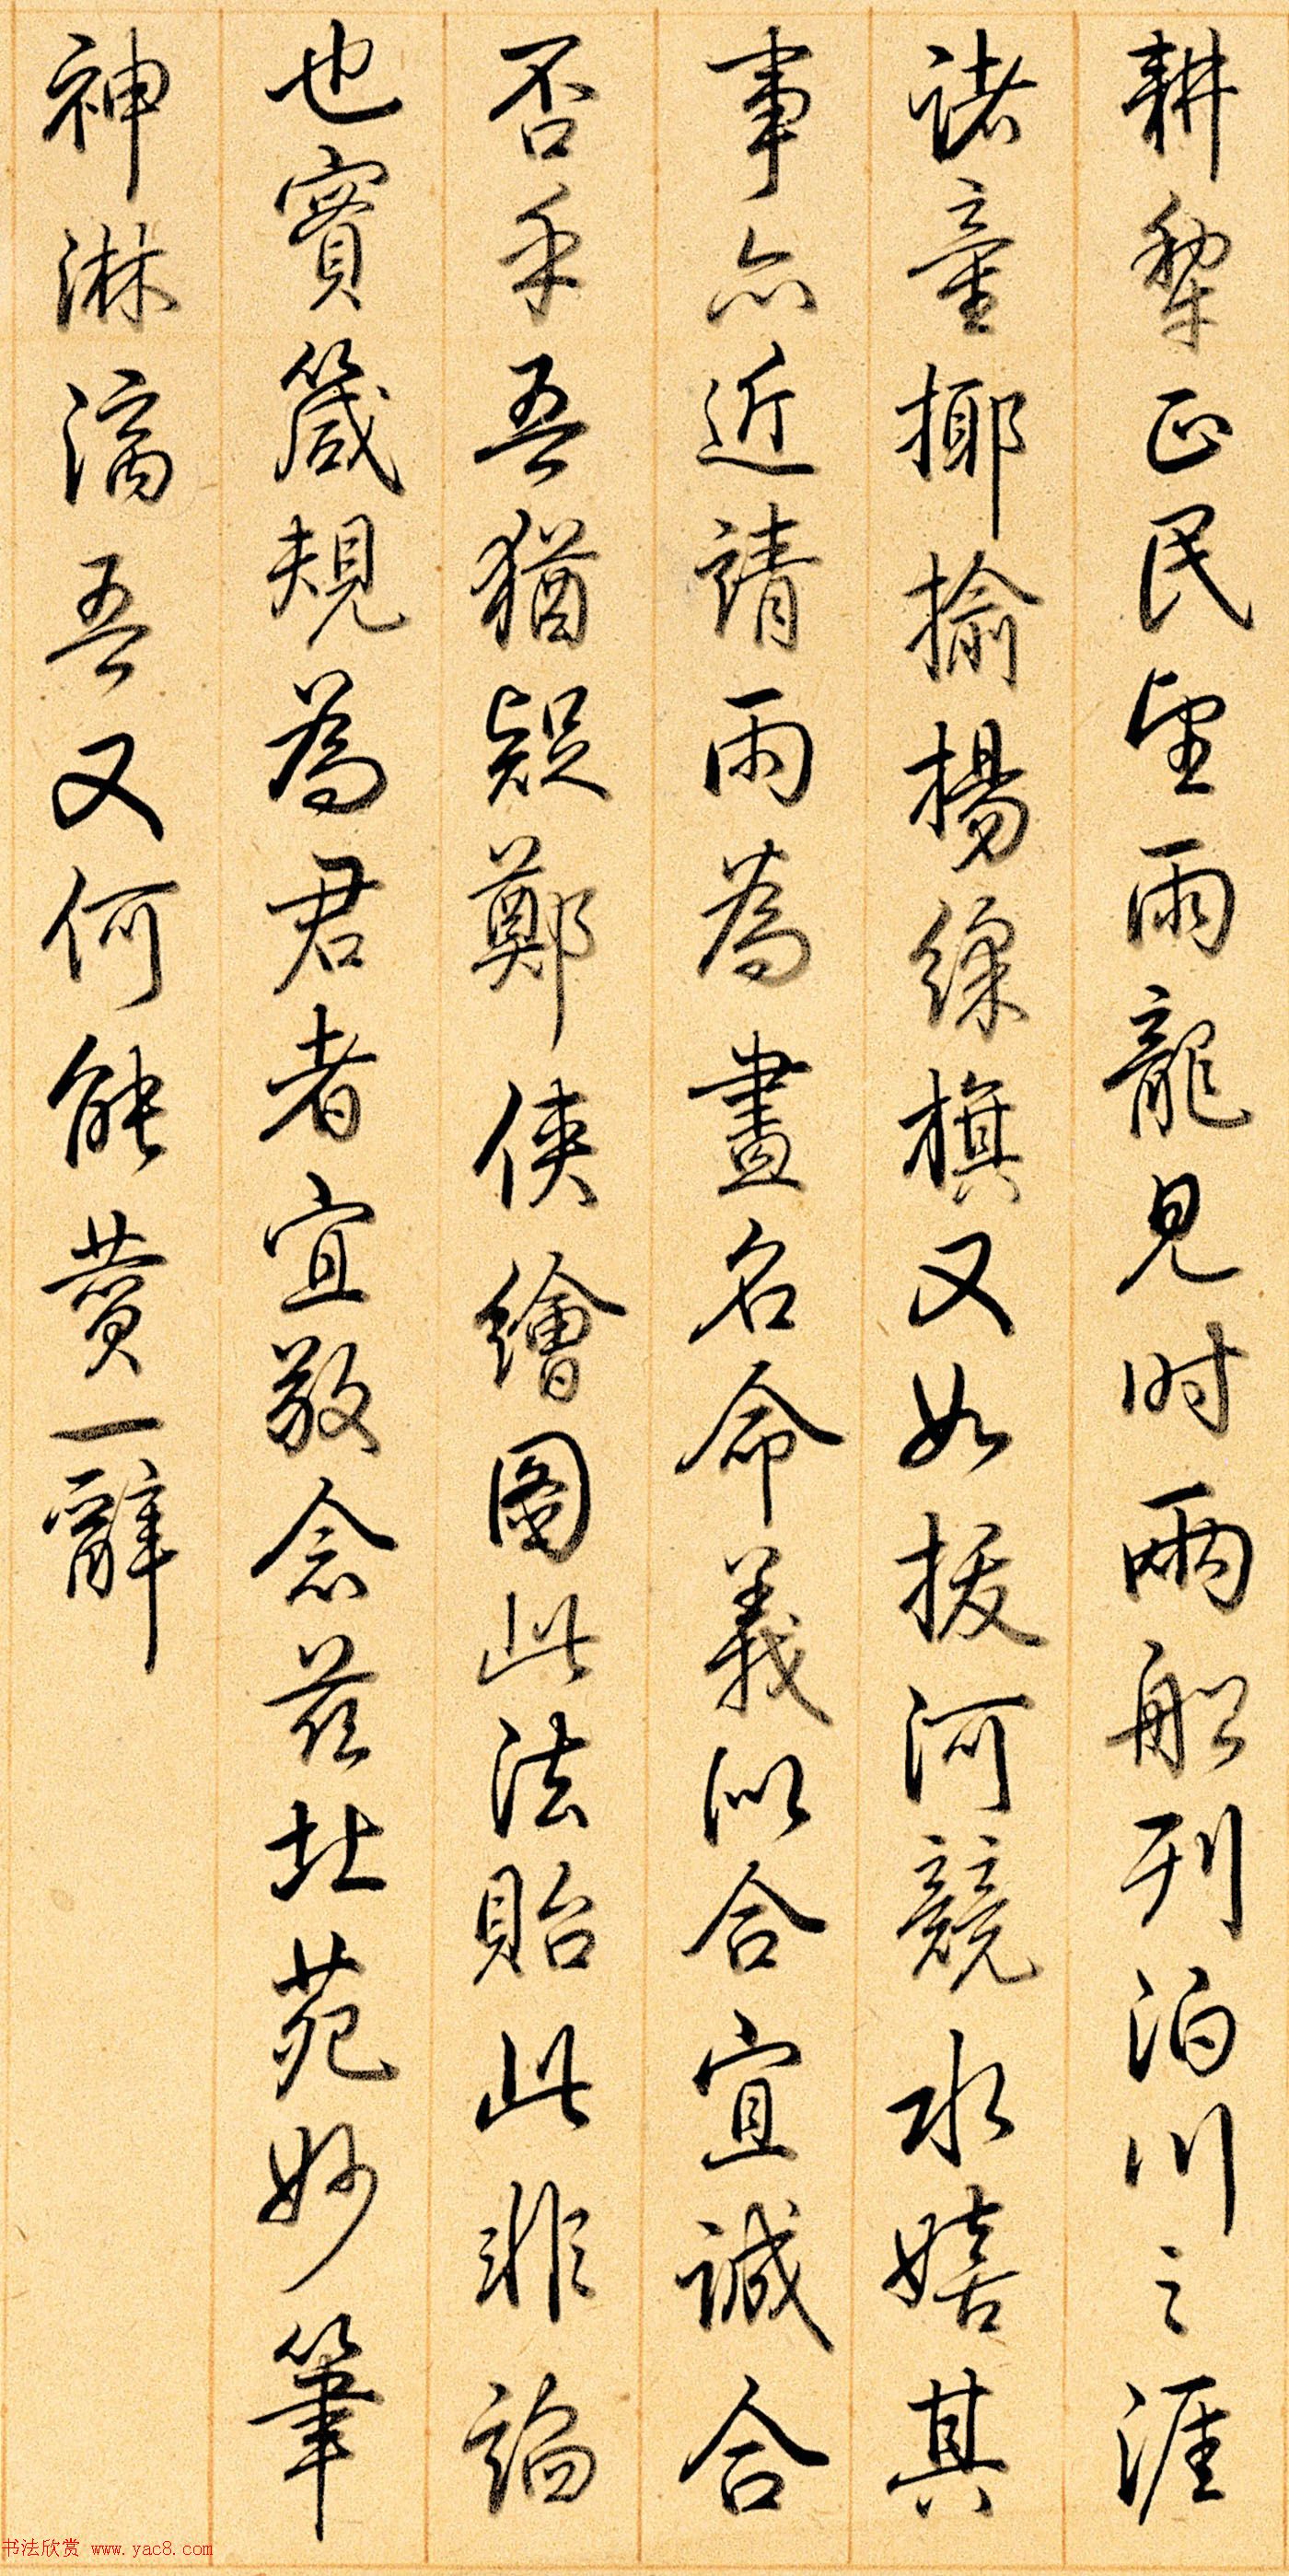 耕犁正民望雨龍見时兩船列泊川之涯
諸童揶揄揚綵旗又如拔河競水嬉其
事亦近請雨為畫名命義似合宜誠合
否乎吾猶疑鄭俠繪圖此法貽此非謟
也實箴規為君者宜敬念茲北苑妙筆
神淋漓吾又何能費一辭
书法欣赏 www.yac8.com